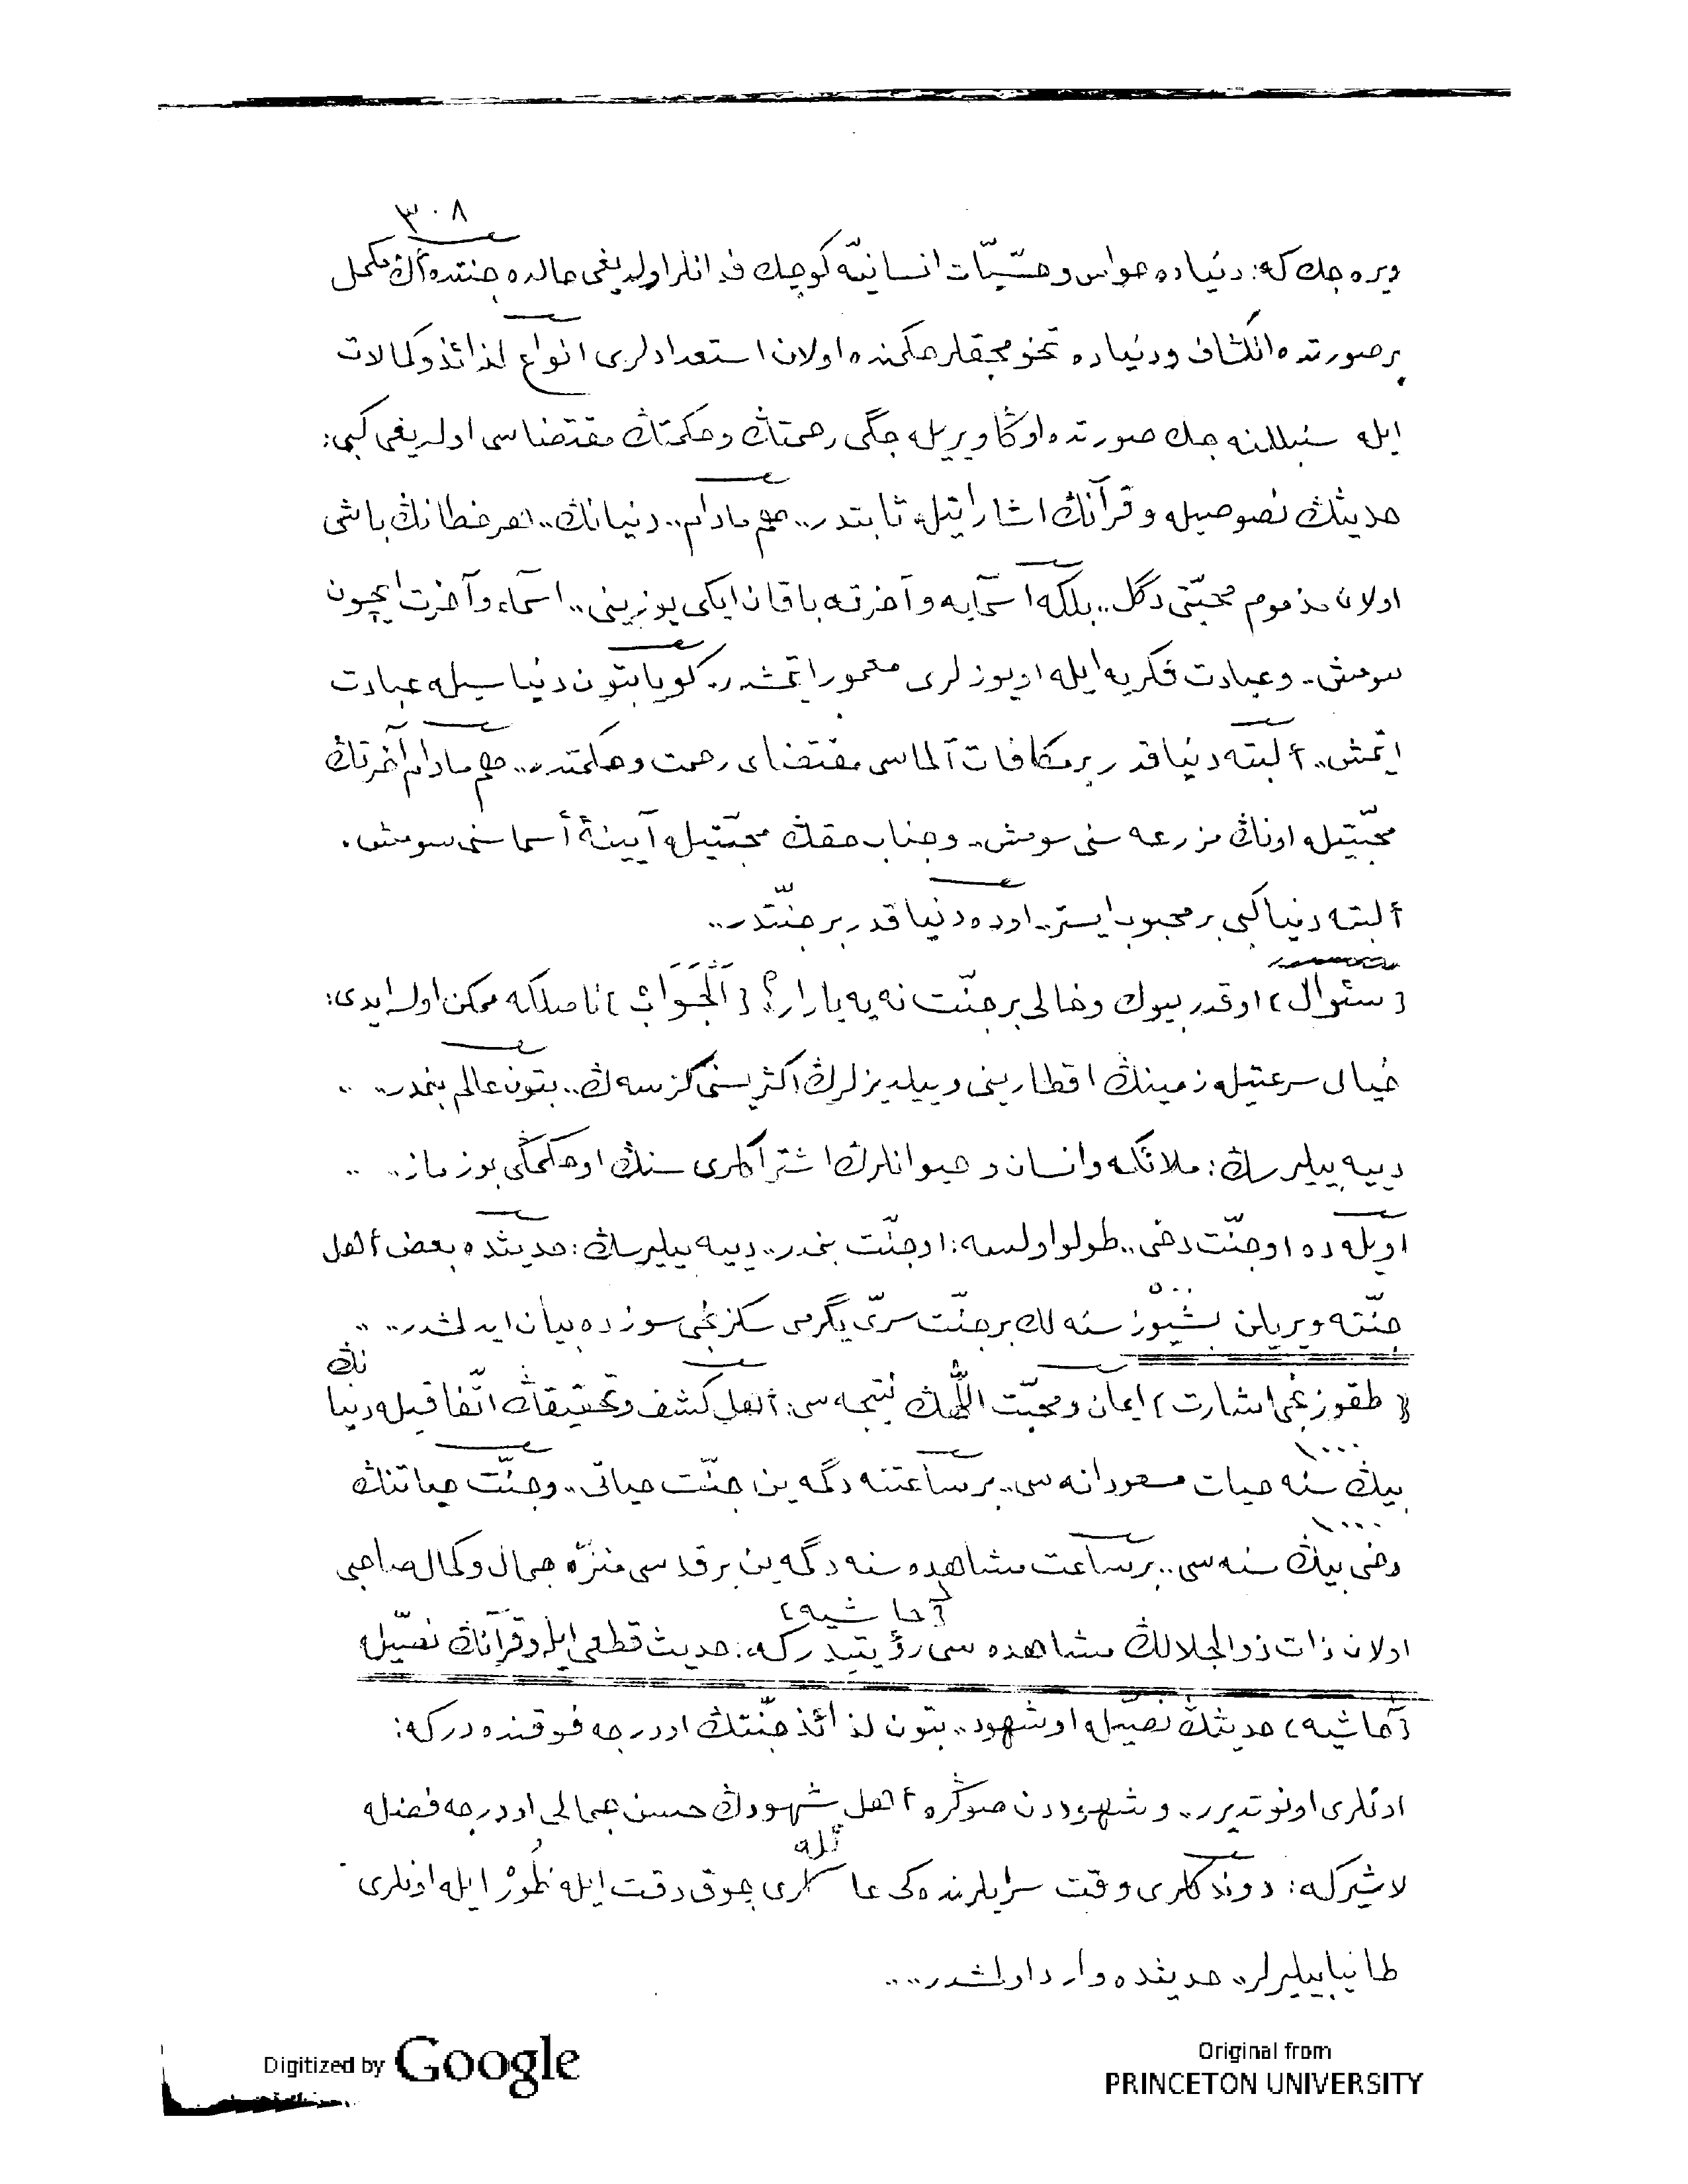 ٣٠٨
ويره جك كه: دنياده حواس وحسّيّات انسانيّه كوچك فدانلر اولديغى حالده جنتده أڭ مكمل
بر صورتده انكشاف ودنياده تخومجقلر حكمنده اولان استعدادلرى انواع لذائذ وكمالات
ايله سنبللنه جك صورتده اوڭا ويريله جگى رحمتڭ وحكمتڭ مقتضاسى اولديغى كبى:
حديثڭ نصوصيله وقرآنڭ اشاراتيله ثابتدر.. هم مادام.. دنيانڭ.. هر خطانڭ باشى
اولان مذموم محبّتى دگل.. بلكه اسمآيه وآخرته باقان ايكى يوزينى.. اسمآء وآخرت ايچون
سومش.. وعبادت فكريه ايله او يوزلرى معمور ايتمشدر. كويا بتون دنياسيله عبادت
ايتمش.. ألبته دنيا قدر بر مكافات آلماسى مقتضاى رحمت وحكمتدر.. هم مادام آخرتڭ
محبّتيله اونڭ مزرعه سنى سومش.. وجناب حقڭ محبّتيله آيينۀ أسماسنى سومش.
ألبته دنيا كبى بر محبوب ايستر.. اوده دنيا قدر بر جنّتدر..
{سئوال} او قدر بيوك وخالى بر جنّت نه يه يارار؟ {اَلْجَوَابُ} ناصلكه ممكن اولسه ايدى:
خيال سرعتيله زمينڭ اقطارينى و ييلديزلرڭ اكثريسنى كزسه ڭ.. بتون عالم بنمدر.. ..
دييه بيليرسڭ: ملائكه وانسان وحيوانلرڭ اشتراكلرى سنڭ او حكمڭى بوزماز.. ..
اويله ده او جنّت دخى.. طولو اولسه: او جنّت بنمدر.. دييه بيليرسڭ: حديثده بعض أهل
جنّته ويريلن بشيوز ٥٠٠ سنه لك بر جنّت سرّى يگرمى سكزنجى سوزده بيان ايدلمشدر.. ..
{طقوزنجى اشارت} ايمان ومحبّت اللّٰهڭ نتيجه سى: أهل كشف وتحقيقاتڭ اتّفاقيله دنيانڭ
بيڭ ١٠٠٠ سنه حيات مسعودانه سى.. بر ساعتنه دگمه ين جنّت حياتى.. وجنّت حياتنڭ
دخى بيڭ ١٠٠٠ سنه سى.. بر ساعت مشاهده سنه دگمه ين بر قدسى منزّه جمال وكمال صاحبى
اولان ذات ذوالجلالڭ مشاهده سى رؤيتيدر {حاشيه} كه: حديث قطعى ايله وقرآنڭ نصّيله
{حاشيه} حديثڭ نصّيله او شهود.. بتون لذائذ جنّتڭ او درجه فوقنده در كه:
اونلرى اونوتديرر.. وشهوددن صوڭره أهل شهودڭ حسن جمالى او درجه فضله
لاشيركه: دوندكلرى وقت سرايلرنده كى عائله لرى چوق دقت ايله ظُورْ ايله اونلرى
طانيابيليرلر.. حديثده وارد اولمشدر....
Digitized by Google
Original from
PRINCETON UNIVERSITY